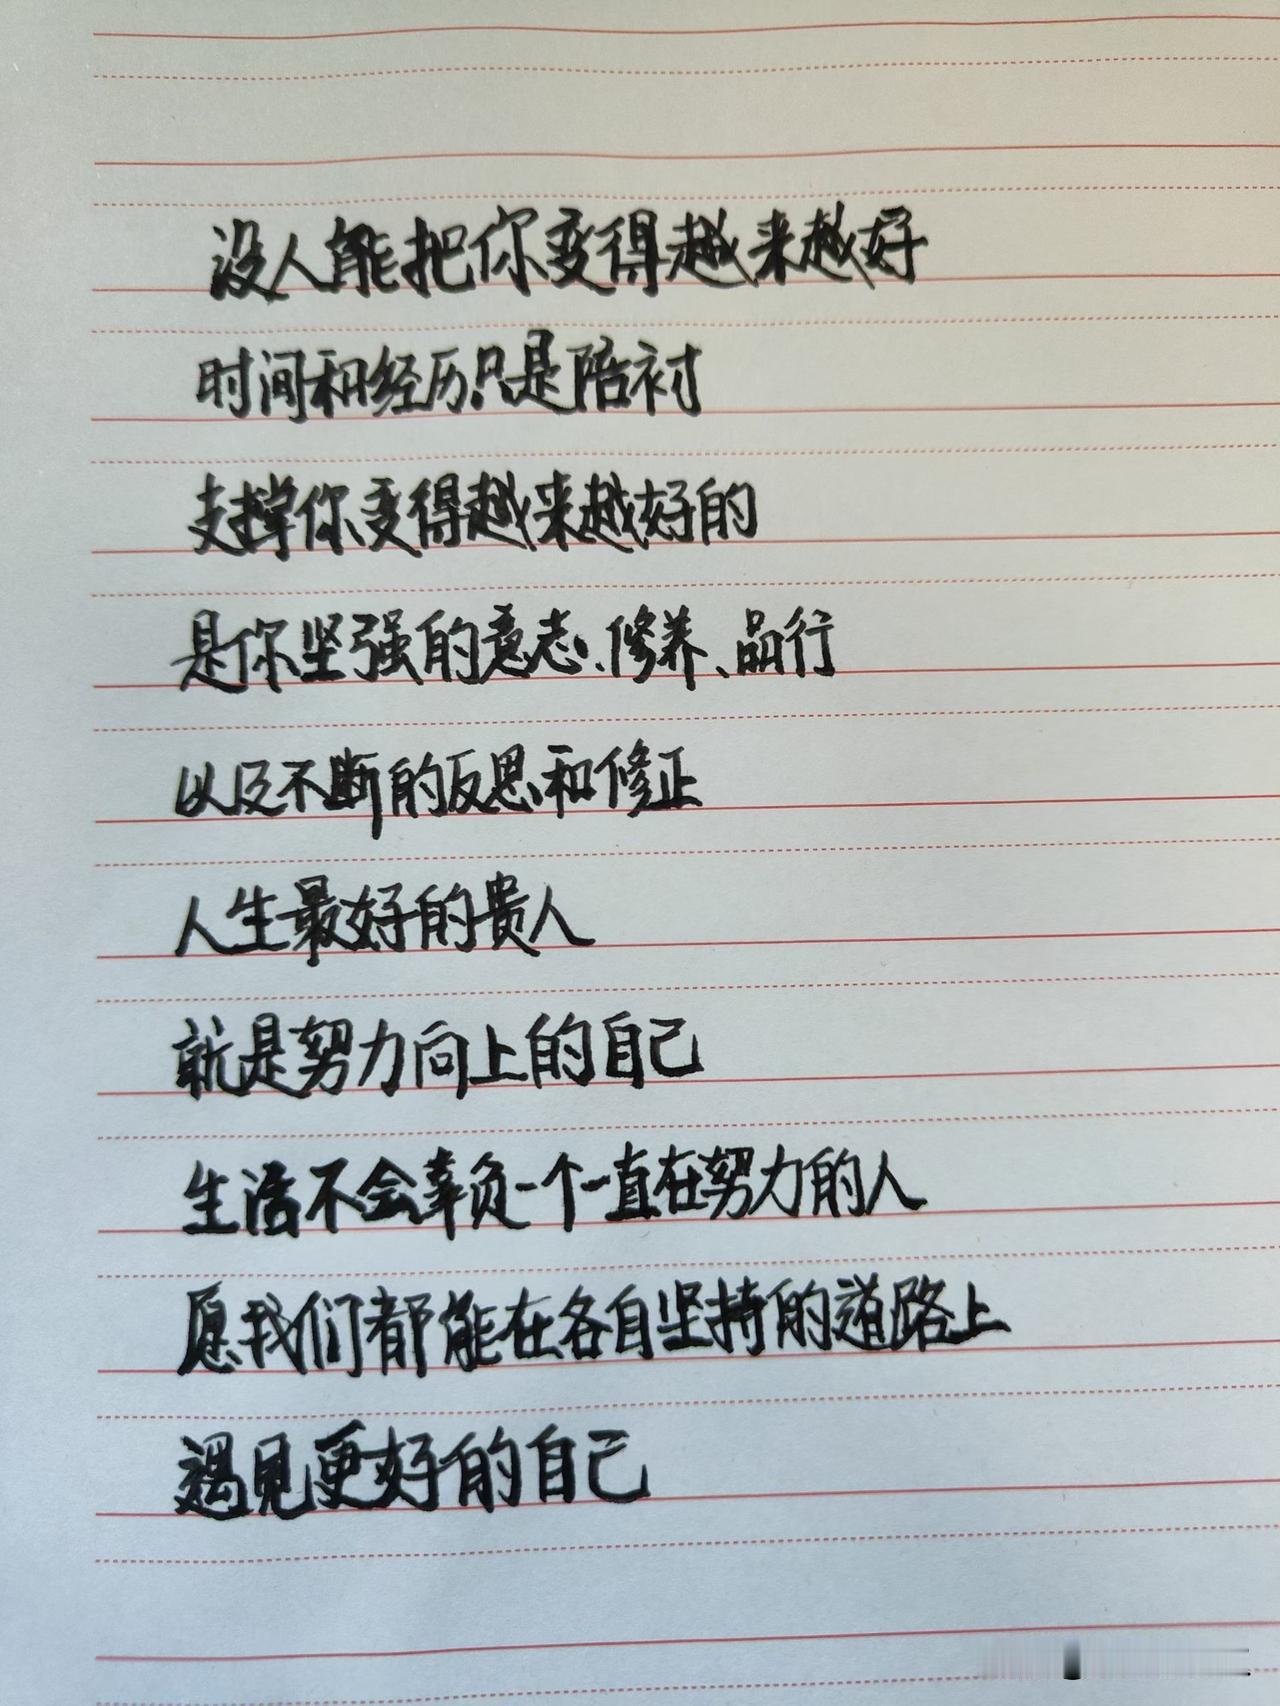 没人能把你变得越来越好
时间和经历只是陪衬
支撑你变得越来越好的
是你坚强的意志、修养、品行
以及不断的反思和修正
人生最好的贵人
就是努力向上的自己
生活不会辜负一个一直在努力的人
愿我们都能在各自坚持的道路上
遇见更好的自己